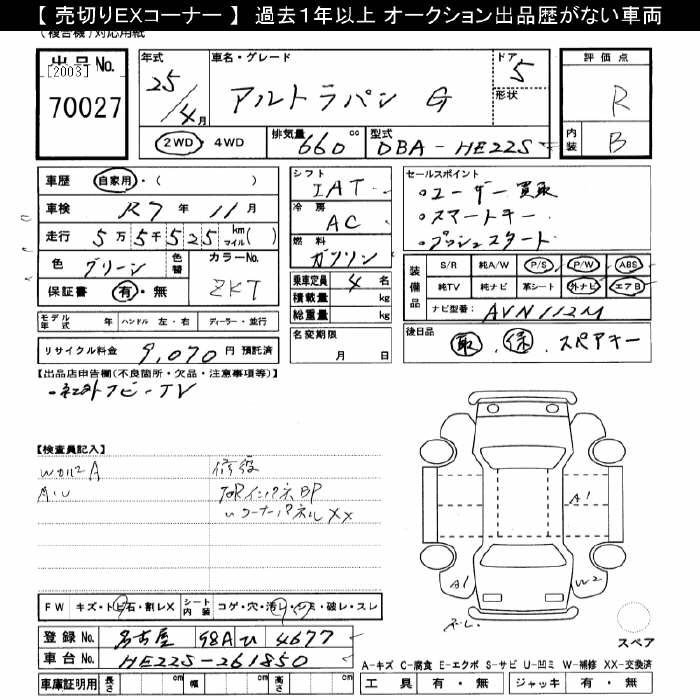 【 売切りEXコーナー 】 過去1年以上 オークション出品歴がない車両
(複合機)対応用紙
出品 No.
[2003]
70027
年式
25/4月
車名・グレード
アルトラパン G
ドア
5
形状
2WD ・ 4WD
排気量
660 cc
型式
DBA-HE22S
評価点
R
内装
B
車歴 自家用・( )
車検 R7年 11月
走行 5万5千525 km マイル( )
色 グリーン
色替
カラーNo.
ZKT
保証書 有・無
シフト
IAT
冷房
AC
燃料
ガソリン
乗車定員 4名
積載量 kg
総重量 kg
セールスポイント
・ユーザー買取
・スマートキー
・プッシュスタート
装備品
S/R 純A/W P/S P/W ABS
純TV 純ナビ 革シート 外ナビ エアB
ナビ型番: AVN112M
モデル年式 年 ハンドル 左・右 ディーラー・並行
リサイクル料金 9,070 円 預託済
名変期限
月 日
後日品
取 . 保 . スペアキー
【出品店申告欄(不良箇所・欠品・注意事項等)】
・社外ナビ-TV
【検査員記入】
A.U
修復
コーナーパネル XX
A1
A1
W2
FW キズ・トビ石・割レX シート内装 コゲ・穴・汚レ・シミ・破レ・スレ
登録 No. 名古屋 98A い 4677
車台 No. HE22S-261850
車庫証明用 長さ cm 幅 cm 高さ cm
スペア
A-キズ C-腐食 E-エクボ S-サビ U-凹ミ W-補修 XX-交換済
工具 有・無 ジャッキ 有・無